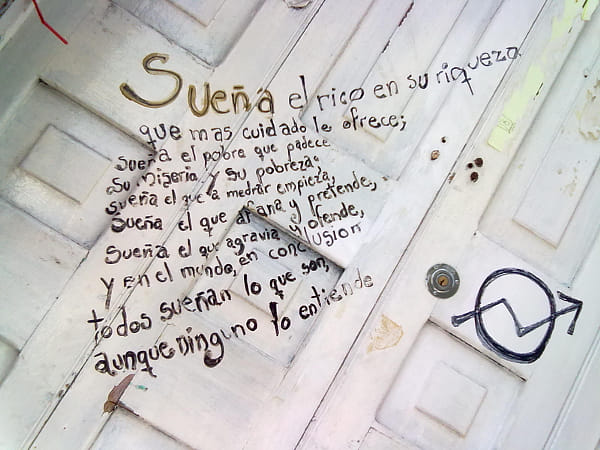 Sueña el rico en su riqueza
que mas cuidado le ofrece;
sueña el pobre que padece
su miseria y su pobreza;
sueña el que a medrar empieza,
sueña el que afana y pretende,
sueña el que agravia y ofende,
y en el mundo, en conclusion
todos sueñan lo que son,
aunque ninguno lo entiende